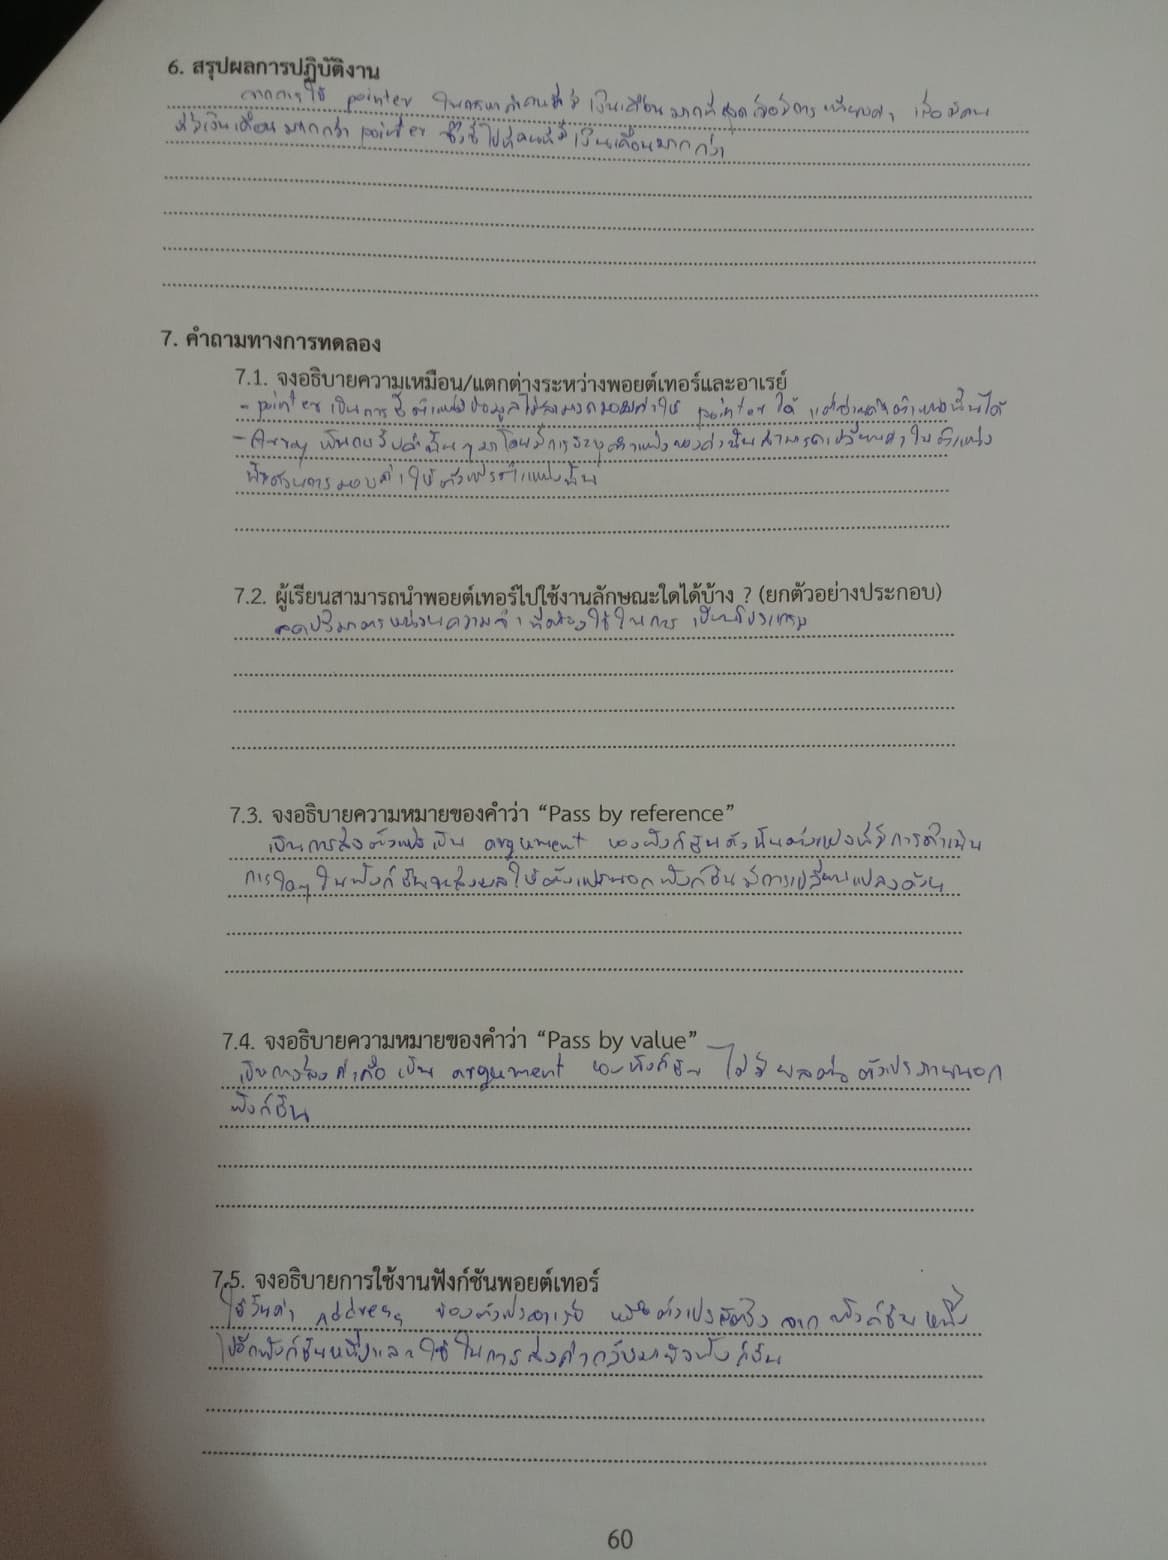 6. สรุปผลการปฏิบัติงาน
จากการใช้ pointer ในการหาค่าคนที่มีเงินเดือนมากที่สุด เมื่อมีการ เมื่อมีคน
ที่มีเงินเดือนมากกว่า pointer จึงชี้ไปที่คนที่มีเงินเดือนมากกว่า
7. คำถามทางการทดลอง
7.1. จงอธิบายความเหมือน/แตกต่างระหว่างพอยต์เทอร์และอาเรย์
- pointer เป็นการชี้ตำแหน่งข้อมูลไม่สามารถมอบค่าให้ pointer ได้ แต่ตำแหน่งนั้นได้
- Array เป็นการ โดยมีการระบุตำแหน่งของค่านั้นสามารถเปลี่ยนค่าในตำแหน่ง
นั้นด้วยการมอบค่าให้ตัวแปรตำแหน่งนั้น
7.2. ผู้เรียนสามารถนำพอยต์เทอร์ไปใช้งานลักษณะใดได้บ้าง ? (ยกตัวอย่างประกอบ)
ลดปริมาณหน่วยความจำที่ต้องใช้ในการ เขียนโปรแกรม
7.3. จงอธิบายความหมายของคำว่า “Pass by reference”
เป็นการส่งตัวแปรเป็น argument ของฟังก์ชันดังนั้นตัวแปรที่มีการดำเนิน
การใดๆ ในฟังก์ชันจะส่งผลให้ตัวแปรนอกฟังก์ชันมีการเปลี่ยนแปลงด้วย
7.4. จงอธิบายความหมายของคำว่า “Pass by value”
เป็นการส่งค่า เป็น argument ของฟังก์ชัน ไม่มีผลต่อตัวแปรภายนอก
ฟังก์ชัน
7.5. จงอธิบายการใช้งานฟังก์ชันพอยต์เทอร์
ใช้รับค่า Address ของตัวแปรอาเรย์ หรือตัวแปรสตริง จากฟังก์ชันหนึ่ง
ไปอีกฟังก์ชันหนึ่งและใช้ในการส่งค่ากลับมายังฟังก์ชัน
60